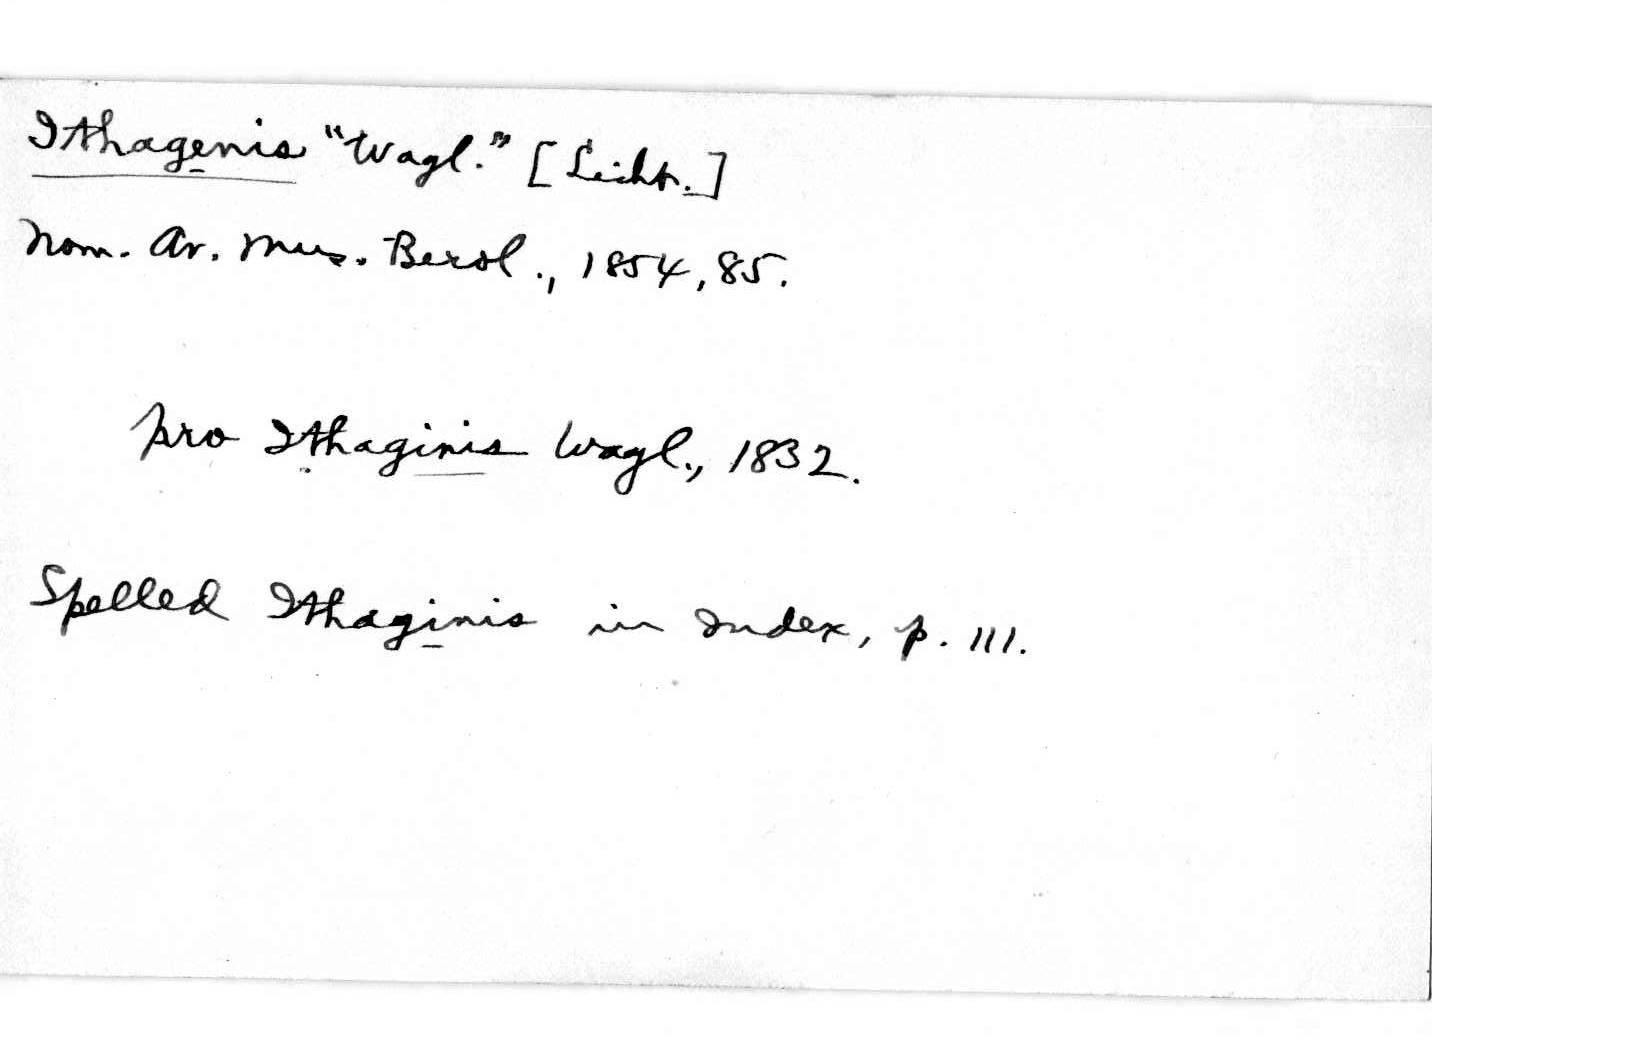 Ithagenis "Wagl." [Licht.]
Nom. Av. Mus. Berol., 1854, 85.
pro Ithaginis Wagl., 1832.
Spelled Ithaginis in Index, p. 111.